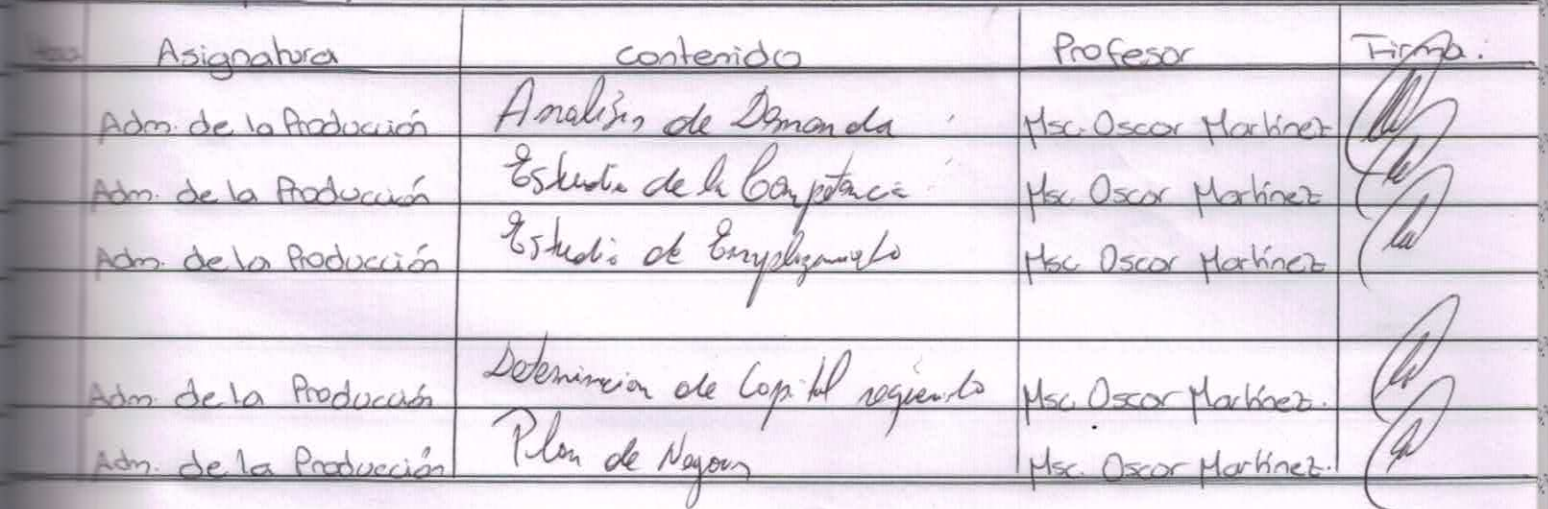 Asignatura contenido Profesor Firma.
Adm. de la Producción Analisis de Demanda Msc. Oscar Martínez
Adm. de la Producción Estudio de la Competencia Msc. Oscar Martínez
Adm. de la Producción Estudio de Emplazamiento Msc Oscar Martínez
Adm. de la Producción Determinacion de Capital requerido Msc. Oscar Martínez.
Adm. de la Producción Plan de Negocios Msc. Oscar Martínez.